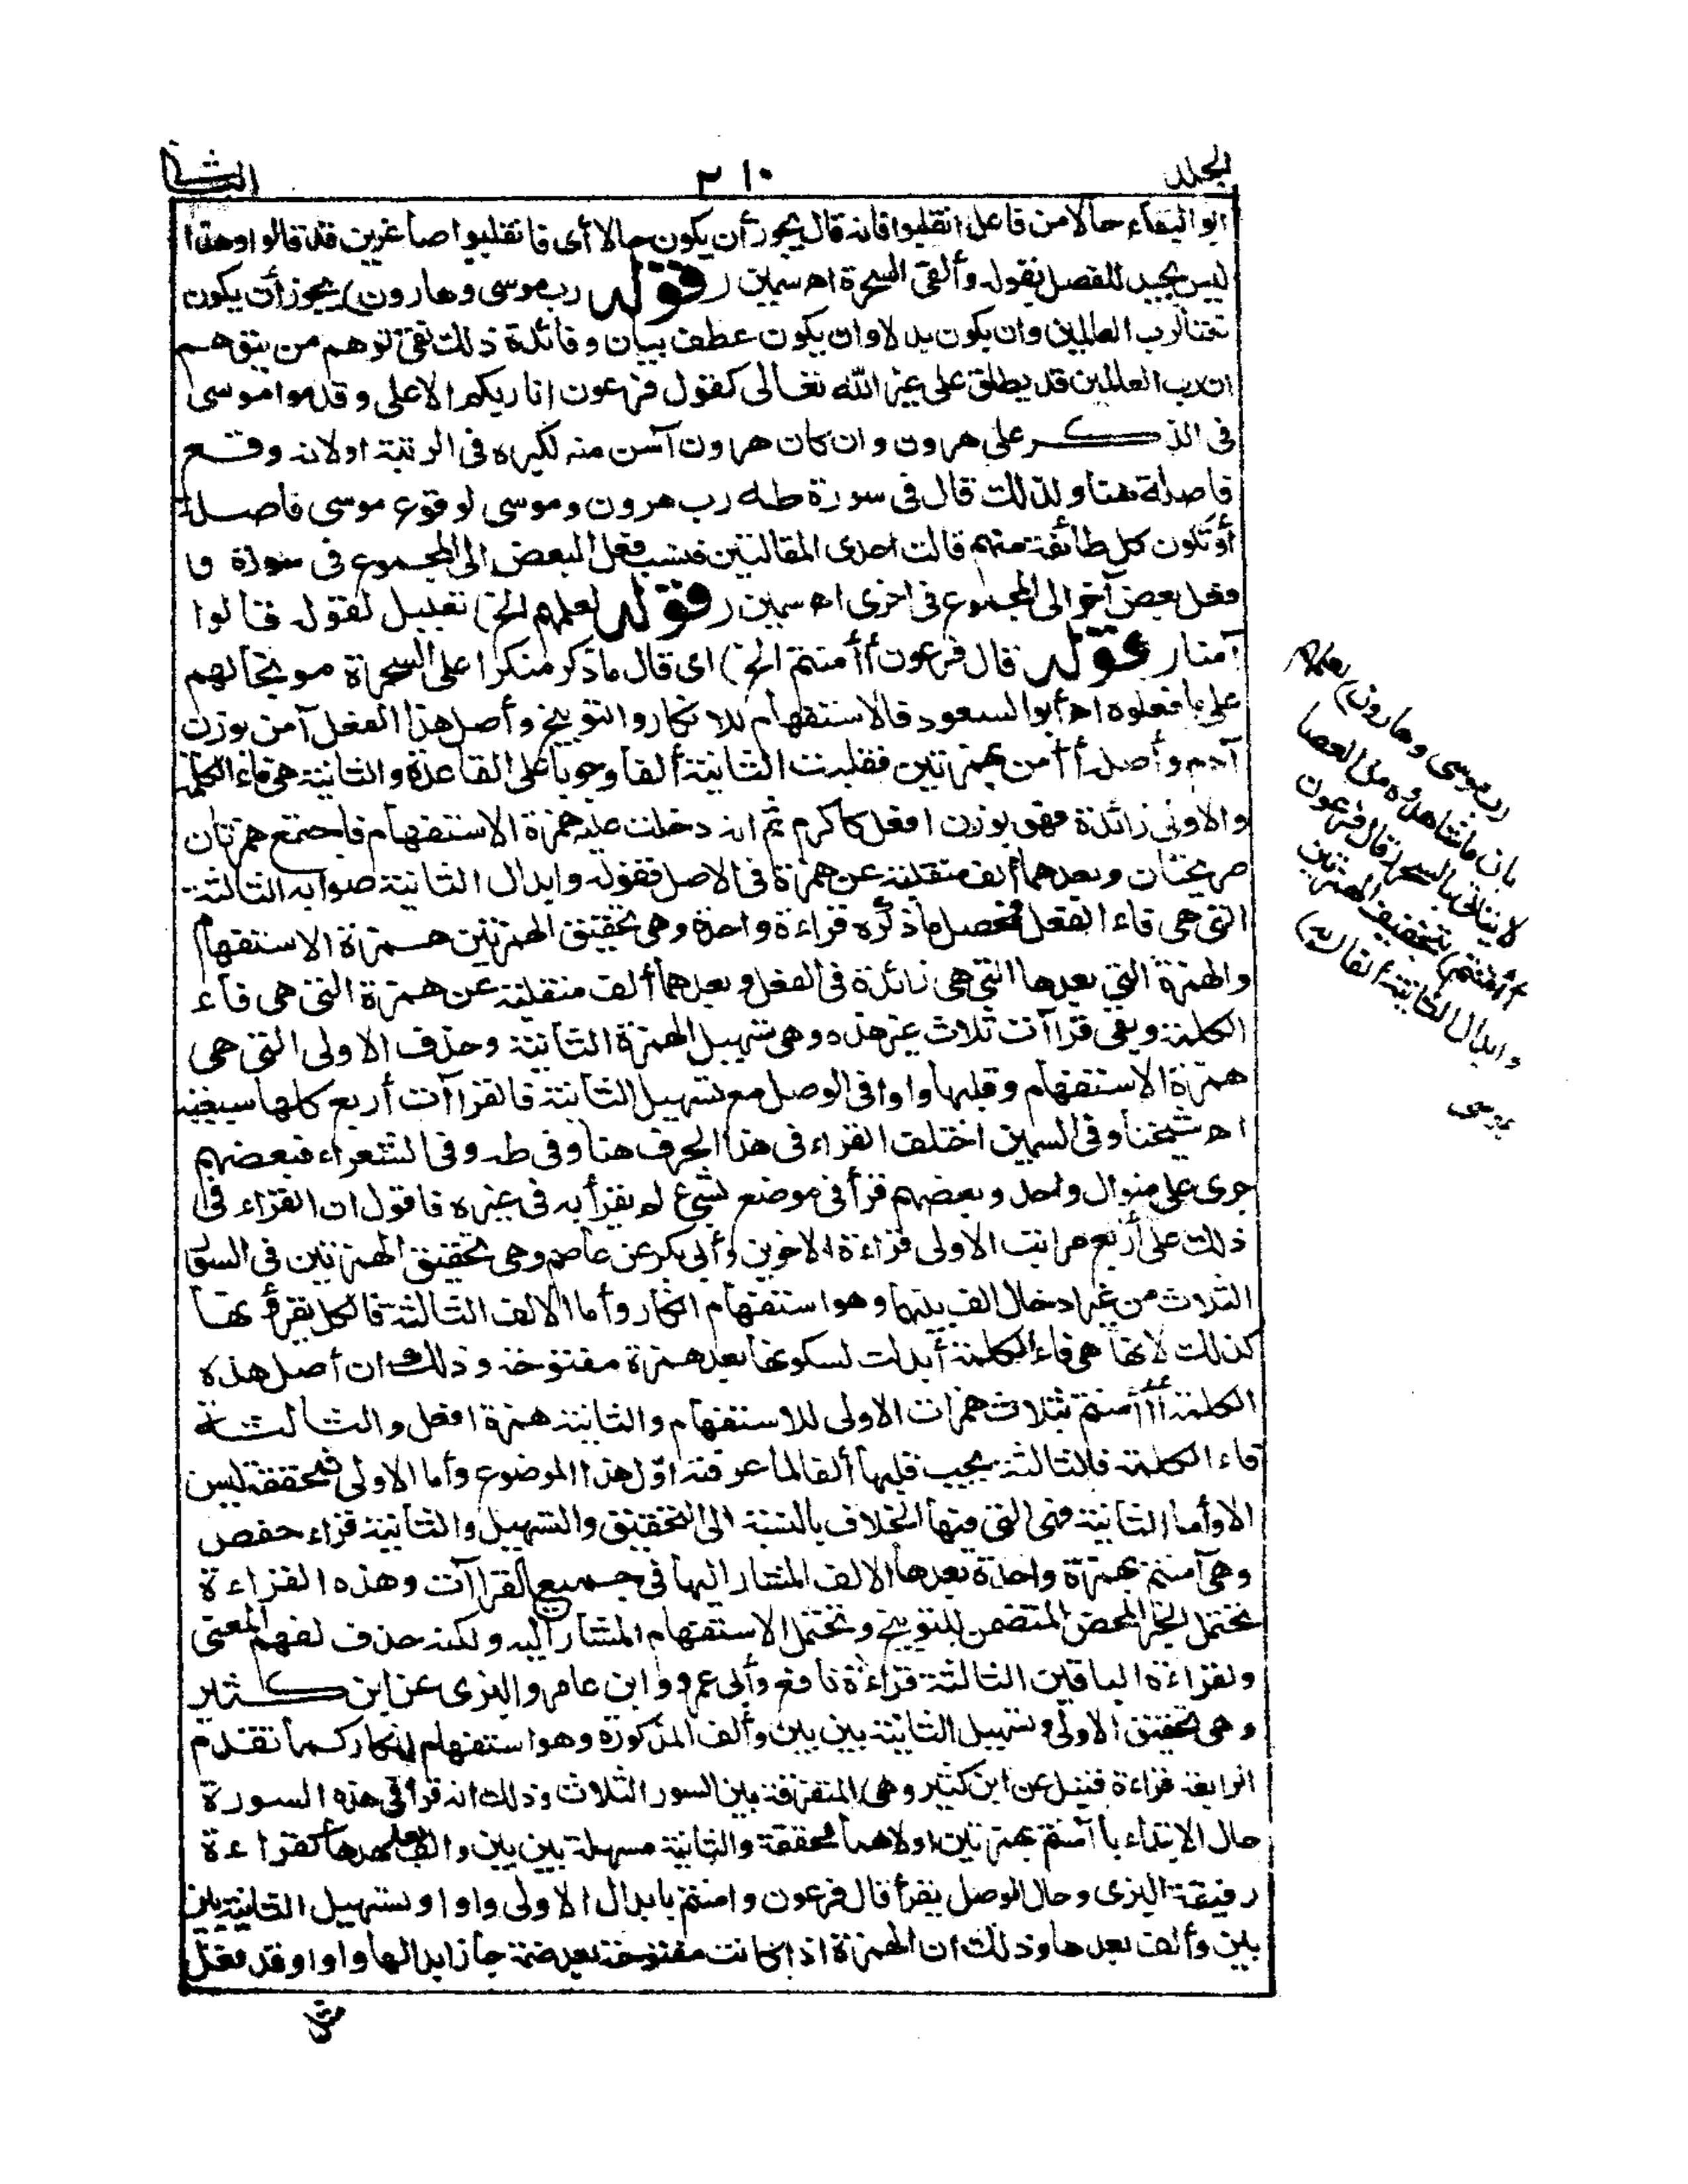 الجلد
٢١٠
الثانى
ابو البقاء حالا من فاعل انقلبوا فانه قال يجوز أن يكون حالا أى فانقلبوا صاغرين قد قالوا وهذا
ليس بجيد للفصل بقوله وألقى السحرة اه سمين (قوله رب موسى وهارون) يجوز أن يكون
نعتا لرب العالمين وان يكون بدلا وان يكون عطف بيان وفائدة ذلك نفى توهم من يتوهم
ان رب العالمين قد يطلق على غير الله تعالى كقول فرعون انا ربكم الاعلى وقدموا موسى
فى الذكر على هرون وان كان هرون آسن منه لكبره فى الرتبة اولانه وقع
فاصلة هنا ولذلك قال فى سورة طه رب هرون وموسى لوقوع موسى فاصلة
أو تكون كل طائفة منهم قالت احدى المقالتين فنسب فعل البعض الى المجموع فى سورة و
فعل بعض آخر الى المجموع فى اخرى اه سمين (قوله لعلهم الخ) تعليل لقوله قالوا
آمنا (قوله قال فرعون أآمنتم الخ) اى قال ما ذكر منكرا على السحرة موبخا لهم
على ما فعلوه اه أبو السعود فالاستفهام للانكار والتوبيخ وأصل هذا الفعل آمن بوزن
آدم وأصله أأمن بهمزتين فقلبت الثانية ألفا وجوبا على القاعدة والثانية هى فاء الكلمة
والاولى زائدة فهو بوزن افعل كاكرم ثم انه دخلت عليه همزة الاستفهام فاجتمع همزتان
صريحتان وبعدهما ألف منقلبة عن همزة فى الاصل فقوله وابدال الثانية صوابه الثالثة
التى هى فاء الفعل فمحصل ما ذكره قراءة واحدة وهى تحقيق الهمزتين همزة الاستفهام
والهمزة التى بعدها التى هى زائدة فى الفعل وبعدهما ألف منقلبة عن همزة التى هى فاء
الكلمة وبقى قراآت ثلاث غير هذه وهى تسهيل الهمزة الثانية وحذف الاولى التى هى
همزة الاستفهام وقلبها واوا فى الوصل مع تسهيل الثانية فالقراآت أربع كلها سبعية
اه شيخنا وفى السمين اختلف القراء فى هذا الحرف هنا وفى طه وفى الشعراء فبعضهم
جرى على منوال واحد وبعضهم قرأ فى موضع بشئ لم يقرأ به فى غيره فاقول ان القراء فى
ذلك على أربع مراتب الاولى قراءة الاخوين وأبى بكر عن عاصم وهى تحقيق الهمزتين فى السور
الثلاث من غير ادخال الف بينهما وهو استفهام انكار وأما الالف الثالثة فالكل يقرؤ بها
كذلك لانها هى فاء الكلمة أبدلت لسكونها بعد همزة مفتوحة وذلك ان أصل هذه
الكلمة أأأمنتم بثلاث همزات الاولى للاستفهام والثانية همزة افعل والثالثة
فاء الكلمة فالثالثة يجب قلبها ألفا لما عرفته اوّل هذا الموضوع وأما الاولى فمحققة ليس
الا وأما الثانية فهى التى فيها الخلاف بالنسبة الى التحقيق والتسهيل والثانية قراءة حفص
وهى آمنتم بهمزة واحدة بعدها الالف المشار اليها فى جميع القراآت وهذه القراءة
تحتمل الخبر المحض المتضمن للتوبيخ وتحتمل الاستفهام المشار اليه ولكنه حذف لفهم المعنى
ولقراءة الباقين الثالثة قراءة نافع وأبى عمرو وابن عامر والبزى عن ابن كثير
وهى تحقيق الاولى وتسهيل الثانية بين بين وألف المذكورة وهو استفهام انكار كما تقدم
الرابعة قراءة قنبل عن ابن كثير وهى المتفرقة بين السور الثلاث وذلك انه قرأ فى هذه السورة
حال الابتداء باآمنتم بهمزتين اولاهما محققة والثانية مسهلة بين بين والف بعدها كقراءة
رفيقه البزى وحال الوصل يقرأ قال فرعون وامنتم بابدال الاولى واوا وتسهيل الثانية بين
بين وألف بعدها وذلك ان الهمزة اذا كانت مفتوحة بعد ضمة جاز ابدالها واوا وقد فعل
رب موسى وهارون)
بان ما شاهدوه من العصا
لا يتأتى بالسحر (قال فرعون
أآمنتم) بتحقيق الهمزتين
وابدال الثانية ألفا (به)
بموسى